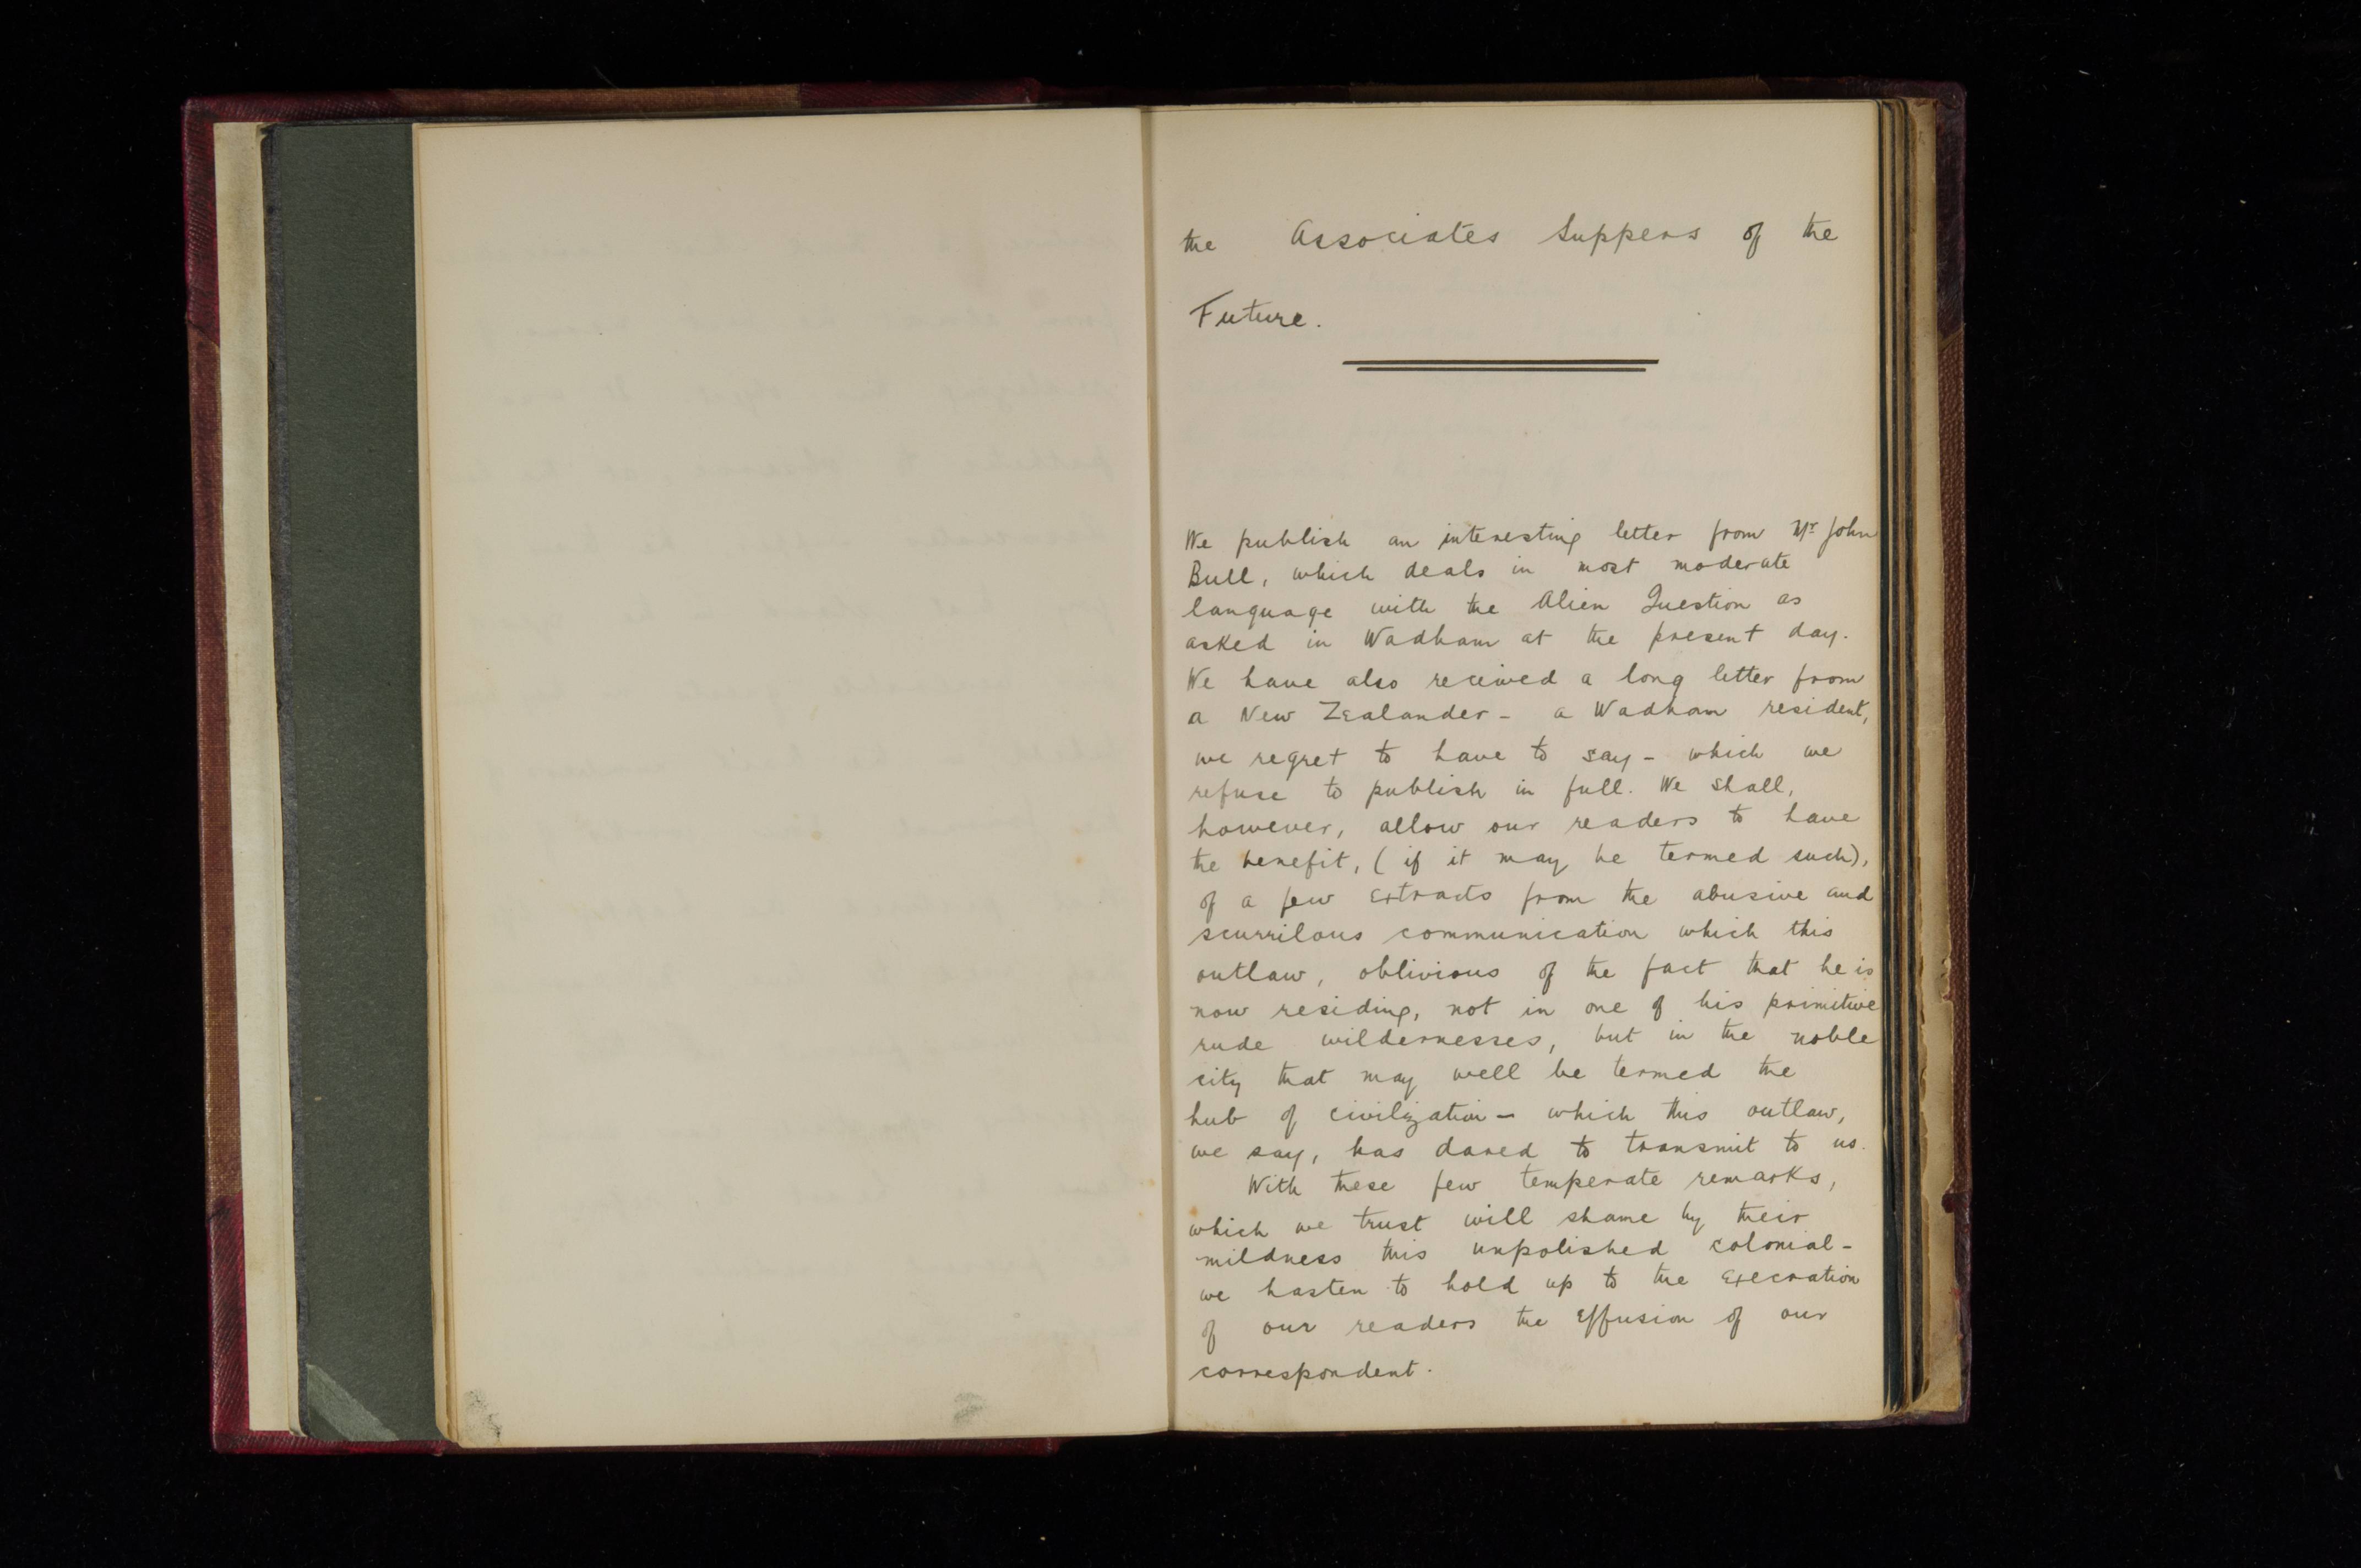 the Associates Suppers of the
Future.
We publish an interesting letter from Mr John
Bull, which deals in most moderate
language with the Alien Question as
asked in Wadham at the present day.
We have also received a long letter from
a New Zealander - a Wadham resident,
we regret to have to say - which we
refuse to publish in full. We shall,
however, allow our readers to have
the benefit, (if it may be termed such),
of a few extracts from the abusive and
scurrilous communication which this
outlaw, oblivious of the fact that he is
now residing, not in one of his primitive
rude wildernesses, but in the noble
city that may well be termed the
hub of civilization - which this outlaw,
we say, has dared to transmit to us.
With these few temperate remarks,
which we trust will shame by their
mildness this unpolished colonial -
we hasten to hold up to the execration
of our readers the effusion of our
correspondent.